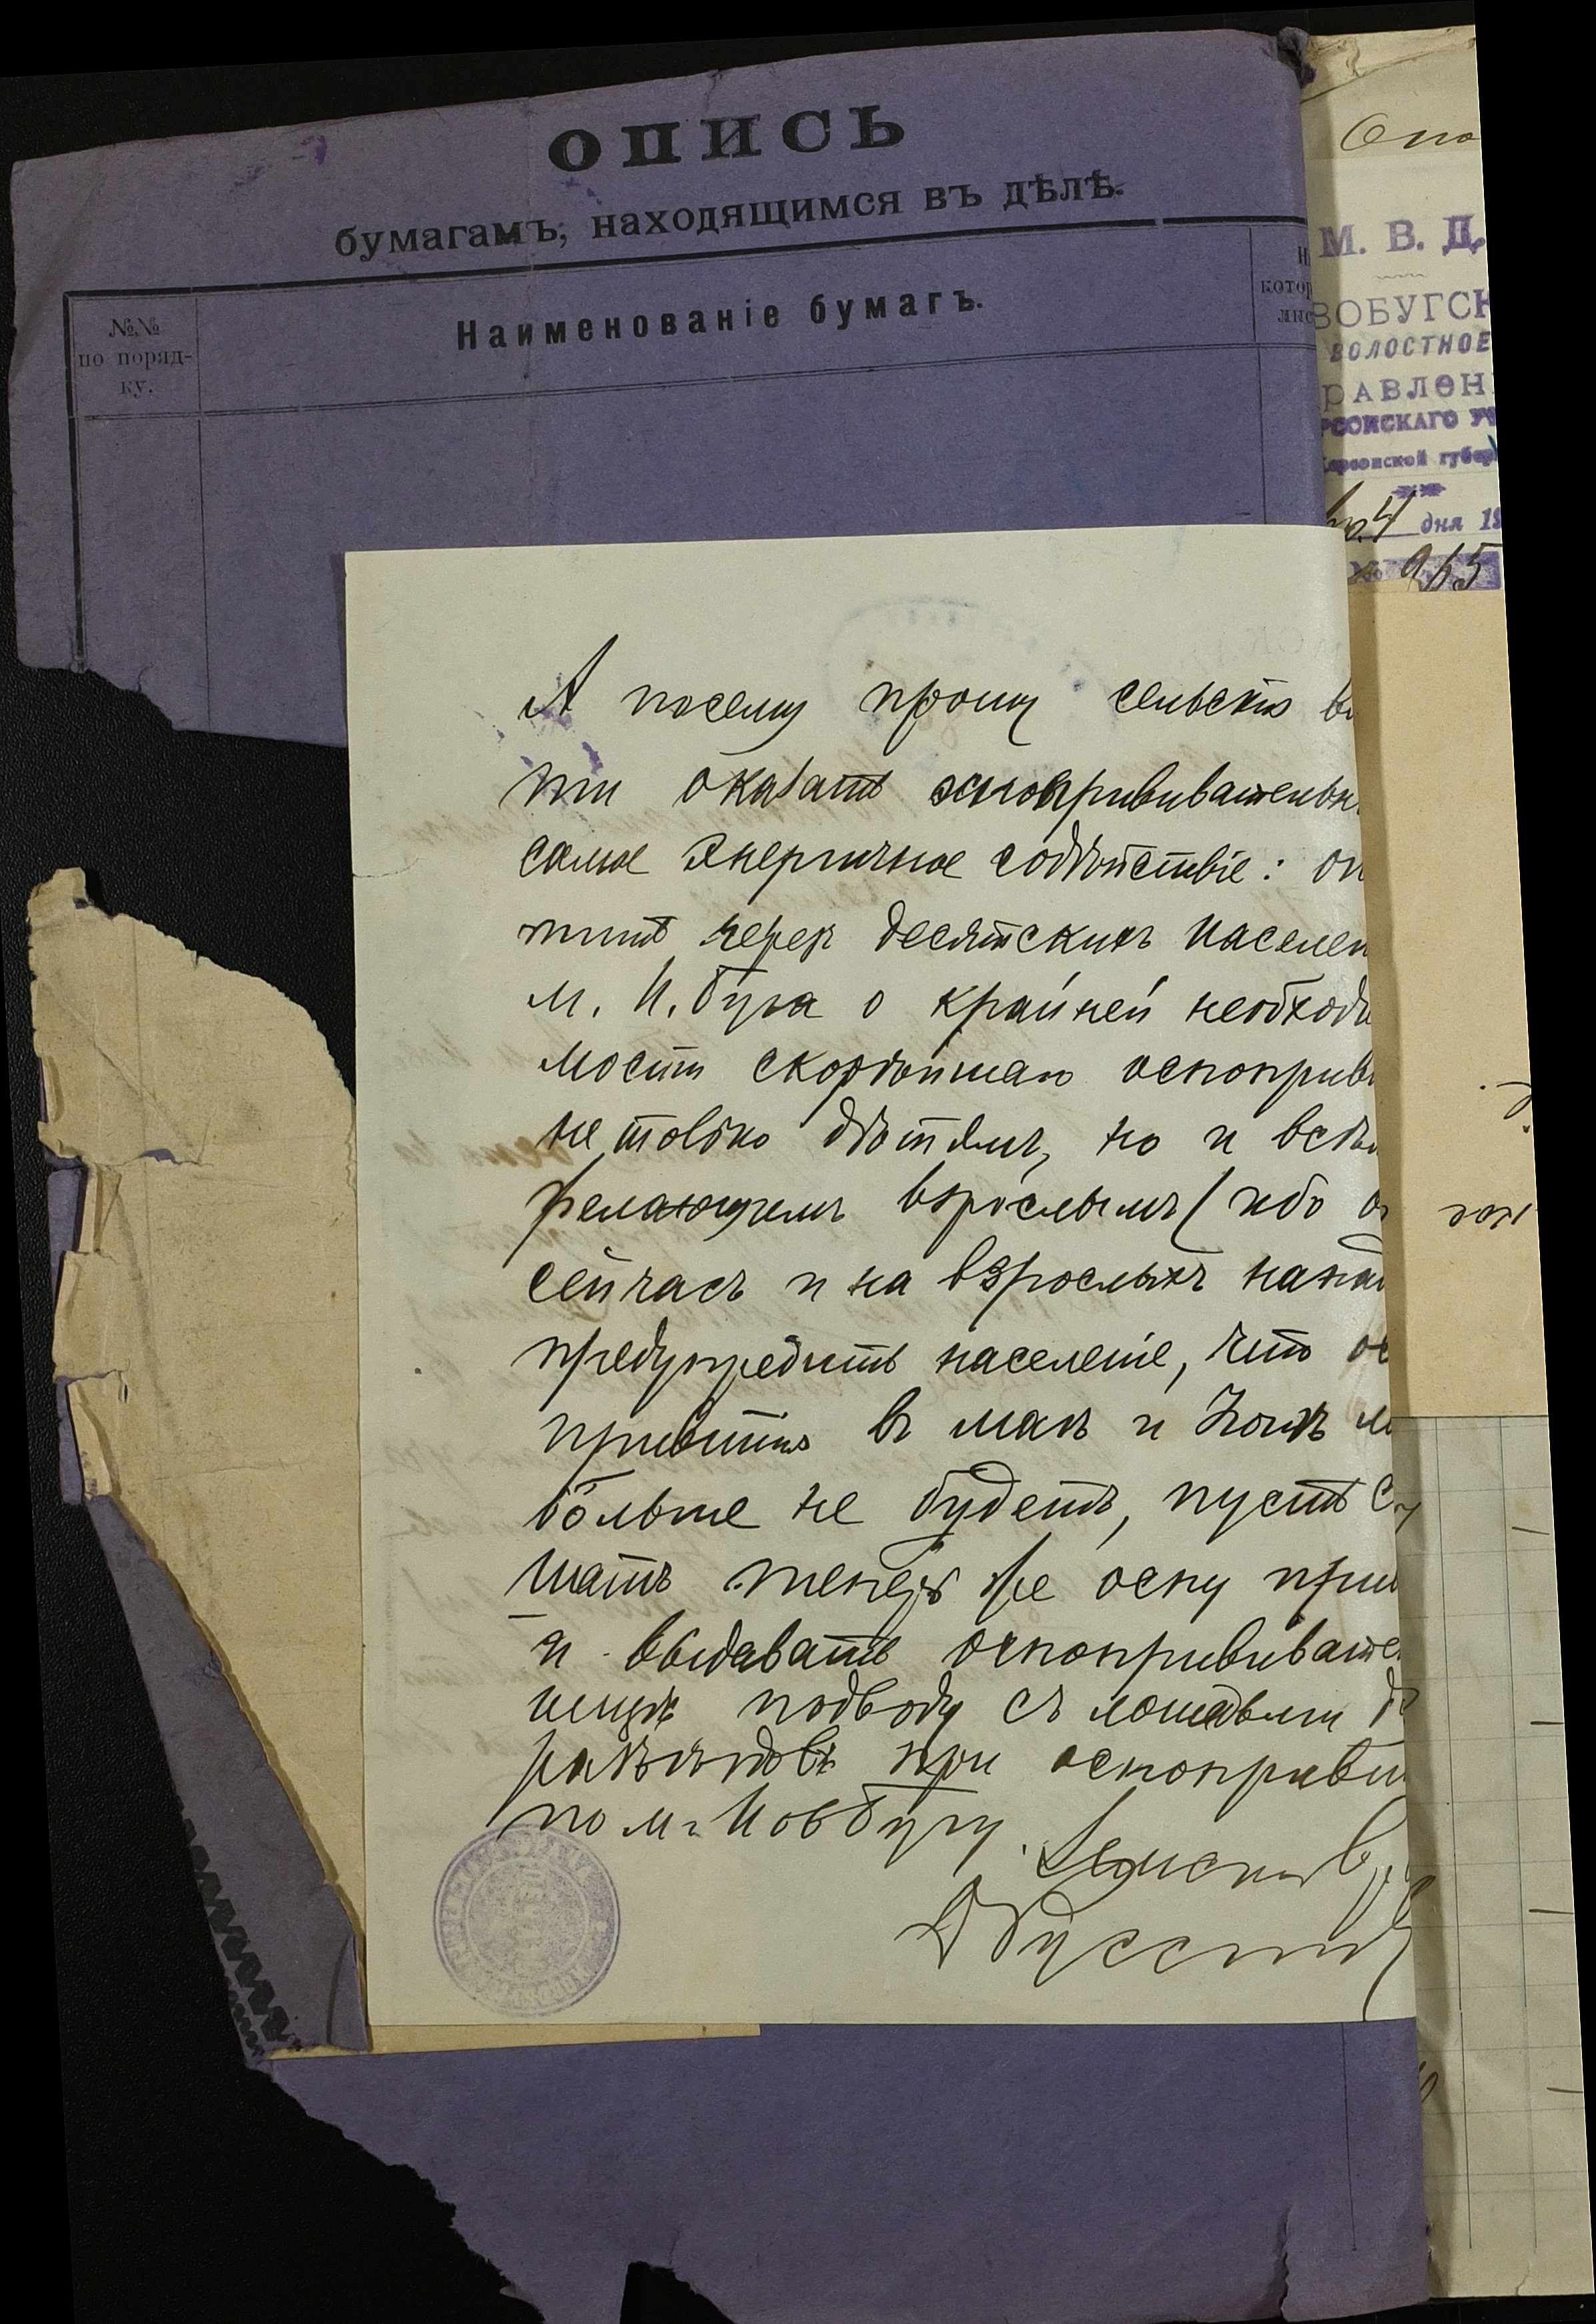 ОПИСЬ
бумагамъ, находящимся въ дѣлѣ.
№№
по поряд-
ку.
Наименованіе бумагъ.
котор
Опо
М. В. Д.
ВОБУГСК
ВОЛОСТНОЕ
РАВЛЕН
РСОНСКАГО УѢ
Херсонской губер
4 дня 19
№ 965
А посему прошу сельскія в
ти оказать оспопрививательн
самое энергичное содѣйствіе: оп
тить черезъ десятскихъ населен
м. Н. Буга о крайней необходи
мости скорѣйшаго оспоприв
не только дѣтямъ, но и всѣм
желающимъ взрослымъ (ибо о
сейчасъ и на взрослыхъ напа
предупредить населеніе, что ос
прививки въ маѣ и Іюнѣ м
больше не будетъ, пусть сп
шатъ теперь же оспу прив
и выдавать оспопрививате
ницѣ подводу съ лошадьми д
разъѣздовъ при оспоприви
по м. Новбугу.
Земскій в